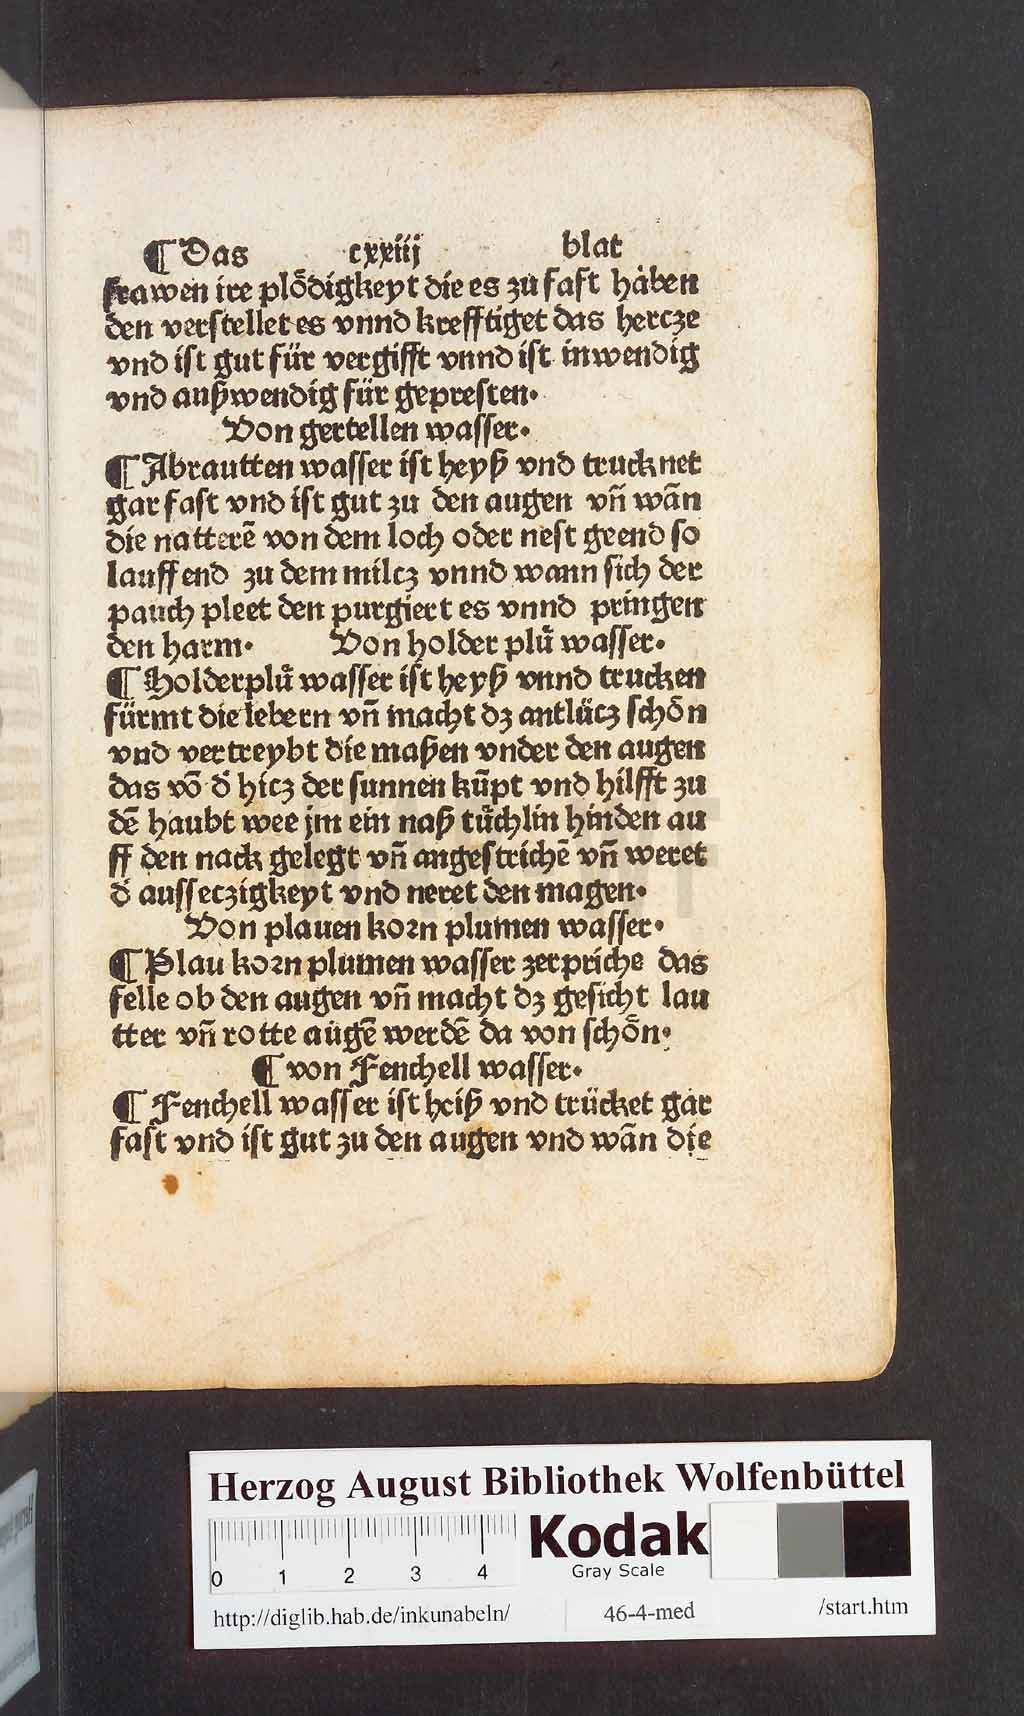 ¶ Das cxxiij blat
frawen ire plödigkeyt die es zu fast haben
den verstellet es vnnd krefftiget das hercze
vnd ist gut für vergifft vnnd ist inwendig
vnd außwendig für gepresten.
Von gertellen wasser.
¶ Abrautten wasser ist heyß vnd trucknet
gar fast vnd ist gut zu den augen vn̄ wān
die natterē von dem loch oder nest geend so
lauffend zu dem milcz vnnd wann sich der
pauch pleet den purgiert es vnnd pringen
den harm. Von holder plů wasser.
¶ Holderplů wasser ist heyß vnnd trucken
fürmt die lebern vn̄ macht dz antlücz schön
vnd vertreybt die maßen vnder den augen
das vō d̛ hicz der sunnen kūpt vnd hilfft zu
dē haubt wee jm ein naß tůchlin hinden au
ff den nack gelegt vn̄ angestrichē vn̄ weret
d̛ ausseczigkeyt vnd neret den magen.
Von plauen korn plumen wasser.
¶ Plau korn plumen wasser zerpriche das
felle ob den augen vn̄ macht dz gesicht lau
tter vn̄ rotte augē werdē da von schön.
¶ von Fenchell wasser.
¶ Fenchell wasser ist heiß vnd trücket gar
fast vnd ist gut zu den augen vnd wān die
Herzog August Bibliothek Wolfenbüttel
Kodak
Gray Scale
0 1 2 3 4
http://diglib.hab.de/inkunabeln/ 46-4-med /start.htm